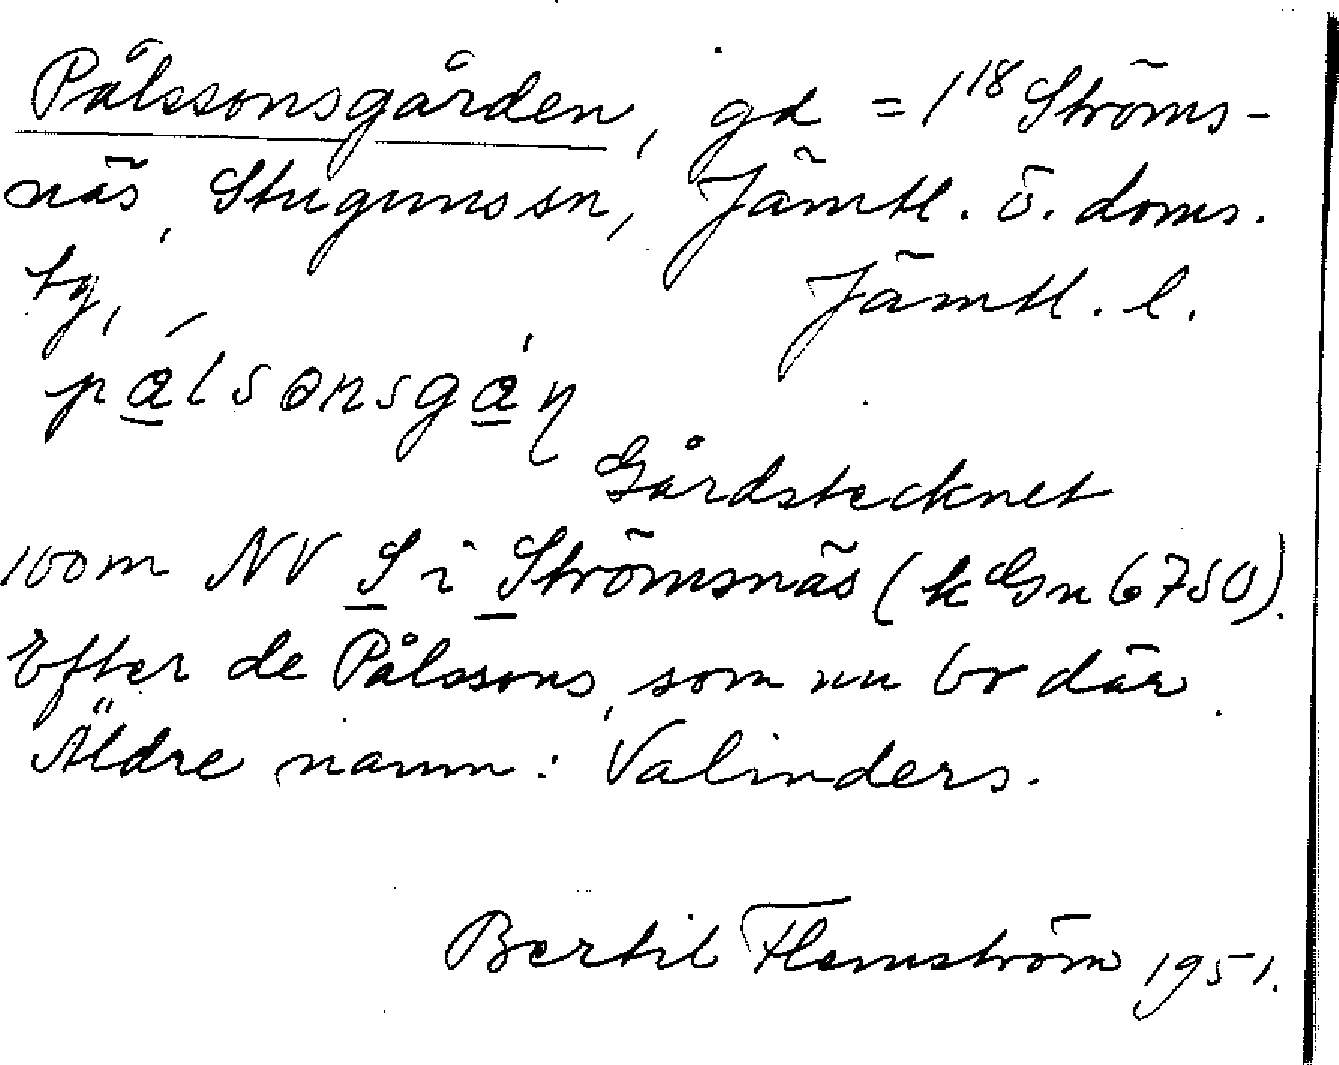 Pålssonsgården, gd = 1¹⁸ Ströms-
näs, Stugunssn, Jämtl. ö. doms.
tg, Jämtl. l.
pa̲lsonsgá̲ṇ
Gårdstecknet
100m NV S i Strömsnäs (kGn 6750).
Efter de Pålssons, som nu bor där.
Äldre namn: Valinders.
Bertil Flemström 1951.